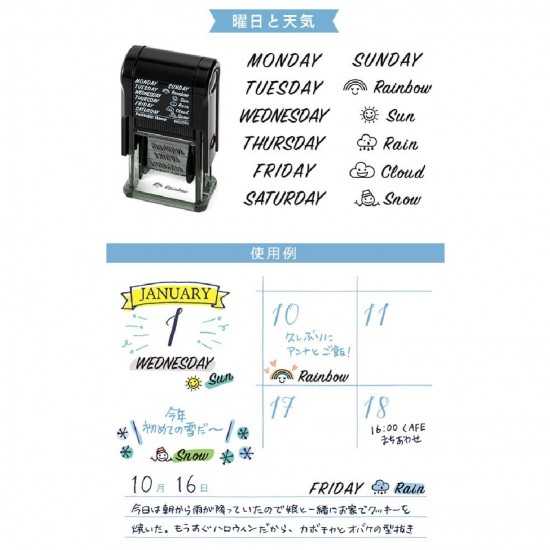 曜日と天気
MONDAY
TUESDAY
WEDNESDAY
THURSDAY
FRIDAY
SATURDAY
SUNDAY
Rainbow
Sun
Rain
Cloud
Snow
MONDAY
TUESDAY
WEDNESDAY
THURSDAY
FRIDAY
SATURDAY
SUNDAY
Rainbow
Sun
Rain
Cloud
Snow
Rainbow
使用例
JANUARY
1
WEDNESDAY
Sun
10
久しぶりに
アンナとご飯!
Rainbow
11
17
18
16:00 CAFE
まちあわせ
今年
初めての雪だ〜
Snow
10月16日
FRIDAY Rain
今日は朝から雨が降っていたので娘と一緒にお家でクッキーを
焼いた。もうすぐハロウィンだから、カボチャとオバケの型抜き